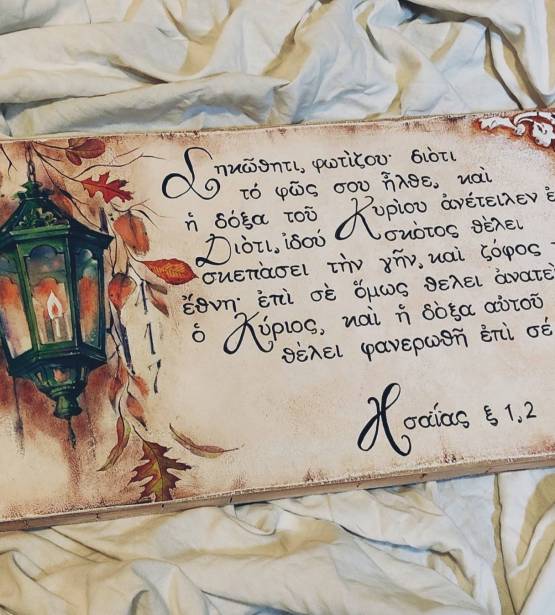 Σηκώθητι, φωτίζου· διότι
τό φῶς σου ἦλθε, καὶ
ἡ δόξα τοῦ Κυρίου ἀνέτειλεν
Διότι, ἰδού σκότος θέλει
σκεπὰσει τὴν γῆν, καὶ ζόφος
ἔθνη· ἐπὶ σὲ ὅμως θελει
ὁ Κύριος, καὶ ἡ δὸξα αὐτοῦ
θὲλει φανερωθῆ ἐπὶ σέ
Ησαΐας ξ 1,2